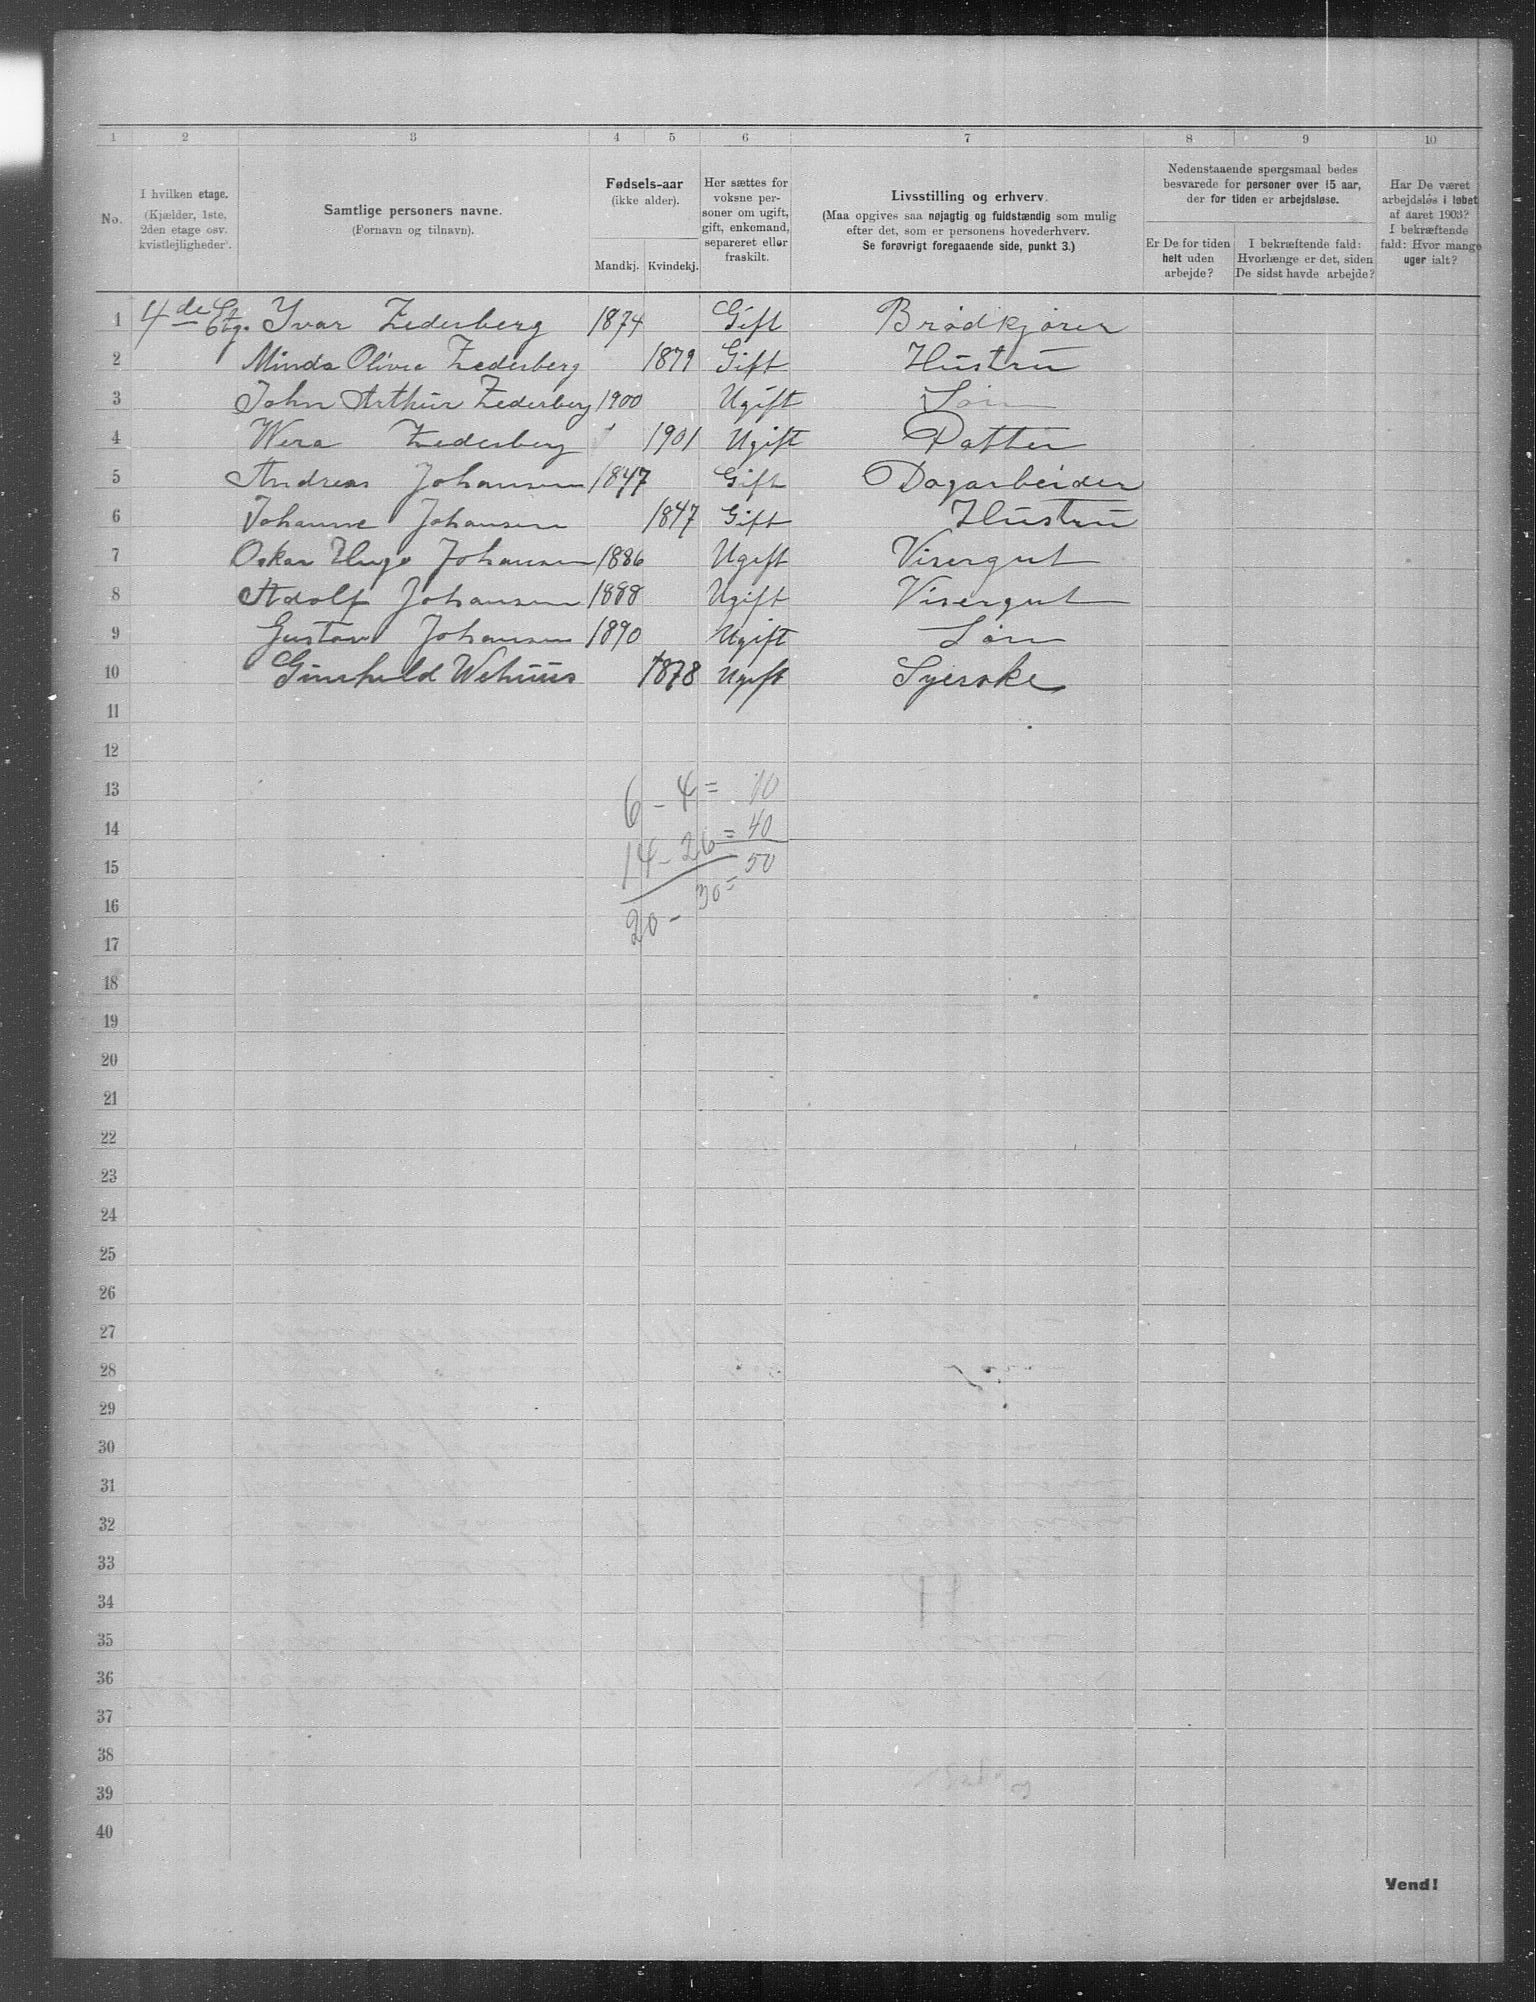 1 2 3 4 5 6 7 8 9 10
No.
I hvilken etage.
(Kjælder, 1ste,
2den etage osv.
kvistlejligheder).
Samtlige personers navne.
(Fornavn og tilnavn).
Fødsels-aar
(ikke alder).
Mandkj. Kvindekj.
Her sættes for
voksne per-
soner om ugift,
gift, enkemand,
separeret eller
fraskilt.
Livsstilling og erhverv.
(Maa opgives saa nøjagtig og fuldstændig som mulig
efter det, som er personens hovederhverv.
Se forøvrigt foregaaende side, punkt 3.)
Nedenstaaende spørgsmaal bedes
besvarede for personer over 15 aar,
der for tiden er arbejdsløse.
Er De for tiden
helt uden
arbejde?
I bekræftende fald:
Hvorlænge er det, siden
De sidst havde arbejde?
Har De været
arbejdsløs i løbet
af aaret 1903?
I bekræftende
fald: Hvor mange
uger ialt?
1 4de Etg. Ivar Zederberg 1874 Gift Brødkjører
2 Minda Olivia Zederberg 1879 Gift Hustru
3 John Arthur Zederberg 1900 Ugift Søn
4 Wera Zederberg 1901 Ugift Datter
5 Andreas Johansen 1847 Gift Dagarbeider
6 Johanne Johansen 1847 Gift Hustru
7 Oskar Hugo Johansen 1886 Ugift Visergut
8 Adolf Johansen 1888 Ugift Visergut
9 Gustav Johansen 1890 Ugift Søn
10 Gunhild Wehuus 1878 Ugift Syerske
11
12
13 6 - 4 = 10
14 14 - 26 = 40
15 50
16 20 - 30 =
17
18
19
20
21
22
23
24
25
26
27
28
29
30
31
32
33
34
35
36
37
38
39
40
Vend!